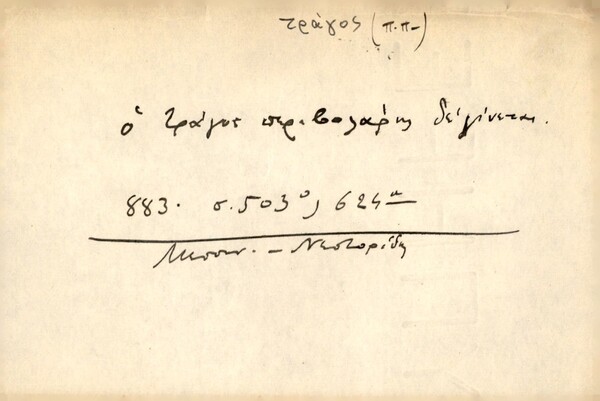 τράγος (π.π-)
ὁ τράγος περιβολάρης δὲ γίνεται.
883. σ. 503, 624
Μεσσην. - Νεστορίδης